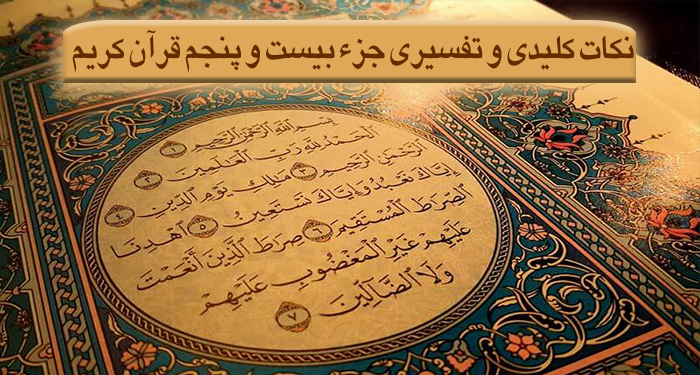 نکات کلیدی و تفسیری جزء بیست و پنجم قرآن کریم
بِسْمِ اللَّهِ الرَّحْمَٰنِ الرَّحِيمِ ١
الْحَمْدُ لِلَّهِ رَبِّ الْعَالَمِينَ ٢
الرَّحْمَٰنِ الرَّحِيمِ ٣ مَالِكِ يَوْمِ الدِّينِ ٤
إِيَّاكَ نَعْبُدُ وَإِيَّاكَ نَسْتَعِينُ ٥ اهْدِنَا
الصِّرَاطَ الْمُسْتَقِيمَ ٦ صِرَاطَ الَّذِينَ أَنْعَمْتَ
عَلَيْهِمْ غَيْرِ الْمَغْضُوبِ عَلَيْهِمْ
وَلَا الضَّالِّينَ ٧